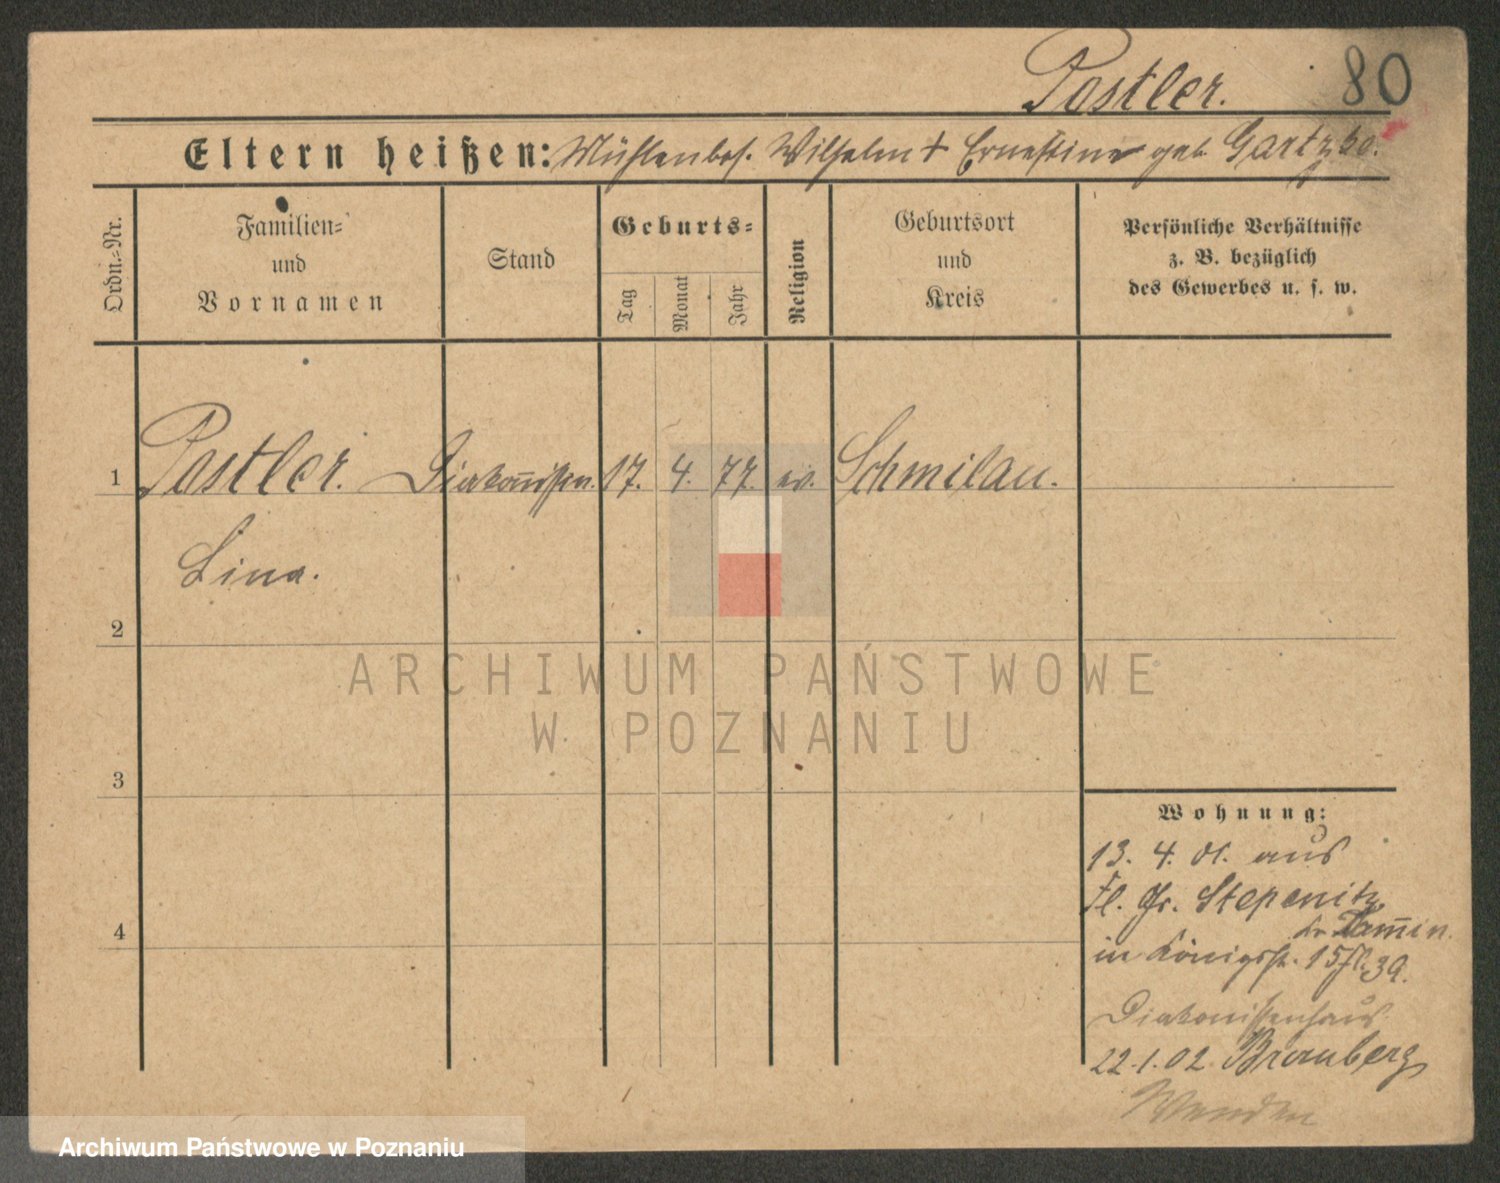 Postler. 80
Eltern heißen: Mühlenbes. Wilhelm + Ernestine geb Gartzke.
Ordn.-Nr.
Familien-
und
Vornamen
Stand
Geburts-
Tag
Monat
Jahr
Religion
Geburtsort
und
Kreis
Persönliche Verhältnisse
z. B. bezüglich
des Gewerbes u. s. w.
1 Postler. Diakonissin. 17. 4. 77. ev. Schmilau.
Lina.
2
ARCHIWUM PAŃSTWOWE
W POZNANIU
3
Wohnung:
13. 4. 01. aus
Fl. Gr. Stepenitz
Kr Kam̅in.
4
in Königsstr. 39.
Diakonissenhaus
22.1.02 Bromberg
Archiwum Państwowe w Poznaniu